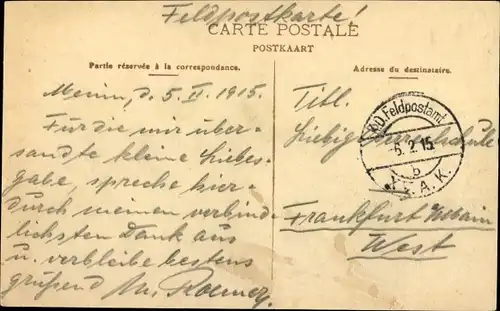 Feldpostkarte!
CARTE POSTALE
POSTKAART
Partie réservée à la correspondance.
Menin, d. 5. II. 1915.
Für die mir über-
sandte kleine Liebes-
gabe, spreche hier-
durch meinen verbind-
lichsten Dank aus
u. verbleibe bestens
grüßend
Adresse du destinataire.
Titl.
Liebig
Frankfurt Main
West
Feldpostamt
6.2.15
b
A.K.